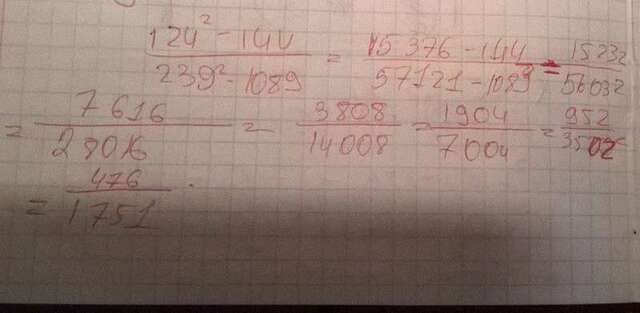 124² - 144 / 239² - 1089 = 15376 - 144 / 57121 - 1089 = 15232 / 56032
= 7616 / 28016 = 3808 / 14008 = 1904 / 7004 = 952 / 3502
= 476 / 1751